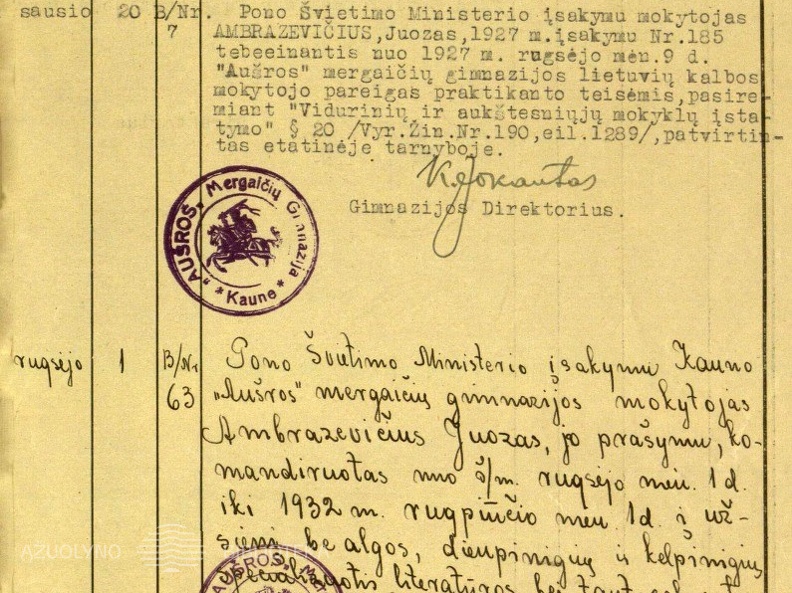 sausio 20 B/Nr. 7
Pono Švietimo Ministerio įsakymu mokytojas
AMBRAZEVIČIUS,Juozas,1927 m.įsakymu Nr.185
tebeeinantis nuo 1927 m. rugsėjo mėn.9 d.
"Aušros" mergaičių gimnazijos lietuvių kalbos
mokytojo pareigas praktikanto teisėmis,pasire-
miant "Vidurinių ir aukštesniųjų mokyklų įsta-
tymo" § 20 /Vyr.Žin.Nr.190,eil.1289/,patvirtin-
tas etatinėje tarnyboje.
K. Jokantas
Gimnazijos Direktorius.
„AUŠROS„ Mergaičių Gimnazija
* Kaune *
rugsėjo 1 B/Nr 63
Pono Švietimo Ministerio įsakymu Kauno
„Aušros" mergaičių gimnazijos mokytojas
Ambrazevičius Juozas, jo prašymu, ko-
mandiruotas nuo š/m. rugsėjo mėn. 1 d.
iki 1932 m. rugpiūčio mėn 1d. į už-
sienį be algos, dienpinigių ir kelpinigių
AZUOLYNO
specializuotis literatūros bei
„AUŠROS„